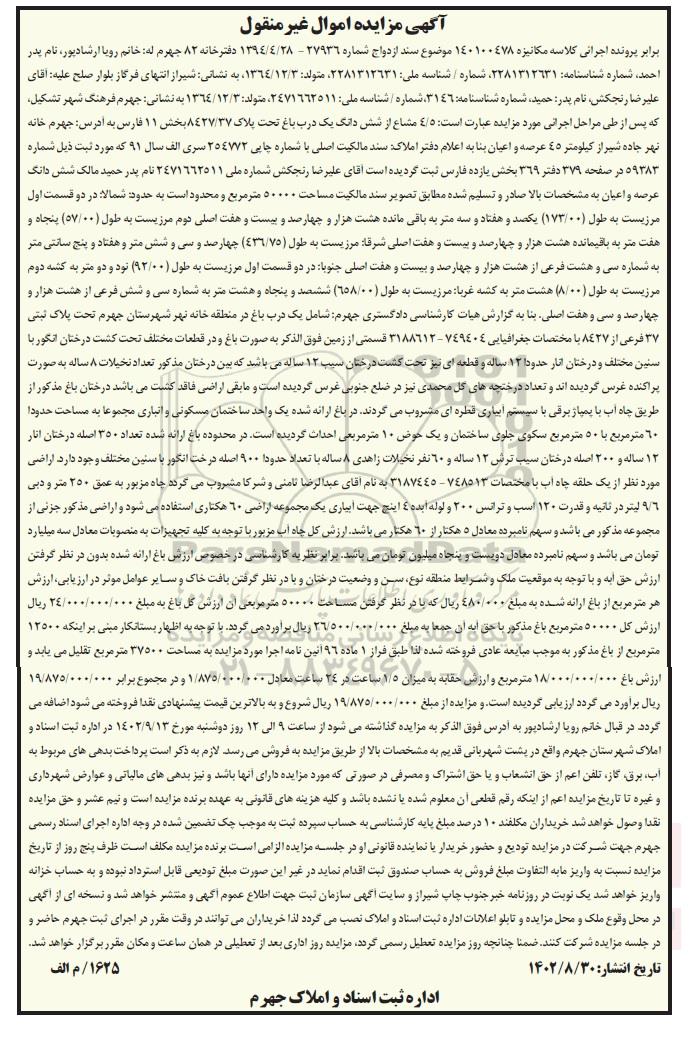 آگهی مزایده اموال غیرمنقول
برابر پرونده اجرائی کلاسه مکانیزه ۱۴۰۱۰۰۴۷۸ موضوع سند ازدواج شماره ۲۷۹۳۶ - ۱۳۹۴/۴/۲۸ دفترخانه ۸۲ جهرم له: خانم رویا ارشادپور، نام پدر
احمد، شماره شناسنامه: ۲۲۸۱۳۱۲۶۳۱، شماره / شناسه ملی: ۲۲۸۱۳۱۲۶۳۱، متولد: ۱۳۶۴/۱۲/۳، به نشانی: شیراز انتهای فرگاز بلوار صلح علیه: آقای
علیرضا رنجکش، نام پدر: حمید، شماره شناسنامه: ۳۱۴۶، شماره / شناسه ملی: ۲۴۷۱۶۶۲۵۱۱، متولد: ۱۳۶۴/۱۲/۳ به نشانی: جهرم فرهنگ شهر تشکیل،
که پس از طی مراحل اجرائی مورد مزایده عبارت است: ۴/۵ مشاع از شش دانگ یک درب باغ تحت پلاک ۸۴۲۷/۳۷ بخش ۱۱ فارس به آدرس: جهرم خانه
نهر جاده شیراز کیلومتر ۴۵ عرصه و اعیان بنا به اعلام دفتر املاک: سند مالکیت اصلی با شماره چاپی ۲۵۴۷۷۲ سری الف سال ۹۱ که مورد ثبت ذیل شماره
۵۹۳۸۳ در صفحه ۳۷۹ دفتر ۳۶۹ بخش یازده فارس ثبت گردیده است آقای علیرضا رنجکش شماره ملی ۲۴۷۱۶۶۲۵۱۱ نام پدر حمید مالک شش دانگ
عرصه و اعیان به مشخصات بالا صادر و تسلیم شده مطابق تصویر سند مالکیت مساحت ۵۰۰۰۰ مترمربع و محدود است به حدود: شمالا: در دو قسمت اول
مرزیست به طول (۱۷۳/۰۰) یکصد و هفتاد و سه متر به باقی مانده هشت هزار و چهارصد و بیست و هفت اصلی دوم مرزیست به طول (۵۷/۰۰) پنجاه و
هفت متر به باقیمانده هشت هزار و چهارصد و بیست و هفت اصلی شرقا: مرزیست به طول (۴۳۶/۷۵) چهارصد و سی و شش متر و هفتاد و پنج سانتی متر
به شماره سی و هشت فرعی از هشت هزار و چهارصد و بیست و هفت اصلی جنوبا: در دو قسمت اول مرزیست به طول (۹۲/۰۰) نود و دو متر به کشه دوم
مرزیست به طول (۸/۰۰) هشت متر به کشه غربا: مرزیست به طول (۶۵۸/۰۰) ششصد و پنجاه و هشت متر به شماره سی و شش فرعی از هشت هزار و
چهارصد و سی و هفت اصلی. بنا به گزارش هیات کارشناسی دادگستری جهرم: شامل یک درب باغ در منطقه خانه نهر شهرستان جهرم تحت پلاک ثبتی
۳۷ فرعی از ۸۴۲۷ با مختصات جغرافیایی ۷۴۹۴۰۴ - ۳۱۸۸۶۱۲ قسمتی از زمین فوق الذکر به صورت باغ و در قطعات مختلف تحت کشت درختان انگور با
سنین مختلف و درختان انار حدودا ۱۲ ساله و قطعه ای نیز تحت کشت درختان سیب ۱۲ ساله می باشد که بین درختان مذکور تعداد نخیلات ۸ ساله به صورت
پراکنده غرس گردیده اند و تعداد درختچه های گل محمدی نیز در ضلع جنوبی غرس گردیده است و مابقی اراضی فاقد کشت می باشد درختان باغ مذکور از
طریق چاه آب با پمپاژ برقی با سیستم ابیاری قطره ای مشروب می گردند. در باغ ارائه شده یک واحد ساختمان مسکونی و انباری مجموعا به مساحت حدودا
۶۰ مترمربع با ۵۰ مترمربع سکوی جلوی ساختمان و یک حوض ۱۰ مترمربعی احداث گردیده است. در محدوده باغ ارائه شده تعداد ۳۵۰ اصله درختان انار
۱۲ ساله و ۲۰۰ اصله درختان سیب ترش ۱۲ ساله و ۶۰ نفر نخیلات زاهدی ۸ ساله با تعداد حدودا ۹۰۰ اصله درخت انگور با سنین مختلف وجود دارد. اراضی
مورد نظر از یک حلقه چاه آب با مختصات ۷۴۸۵۱۳ - ۳۱۸۷۴۴۵ به نام آقای عبدالرضا ثامنی و شرکا مشروب می گردد چاه مزبور به عمق ۲۵۰ متر و دبی
۹/۶ لیتر در ثانیه و قدرت ۱۲۰ اسب و ترانس ۲۰۰ و لوله ابده ۴ اینچ جهت آبیاری یک مجموعه اراضی ۶۰ هکتاری استفاده می شود و اراضی مذکور جزئی از
مجموعه مذکور می باشد و سهم نامبرده معادل ۵ هکتار از ۶۰ هکتار می باشد. ارزش کل چاه آب مزبور با توجه به کلیه تجهیزات به منصوبات معادل سه میلیارد
تومان می باشد و سهم نامبرده معادل دویست و پنجاه میلیون تومان می باشد. برابر نظریه کارشناسی در خصوص ارزش باغ ارائه شده بدون در نظر گرفتن
ارزش حق آبه و با توجه به موقعیت ملک و شرایط منطقه نوع، سن و وضعیت درختان و با در نظر گرفتن بافت خاک و سایر عوامل موثر در ارزیابی، ارزش
هر مترمربع از باغ ارائه شده به مبلغ ۴۸۰/۰۰۰ ریال که با در نظر گرفتن مساحت ۵۰۰۰۰ مترمربعی آن ارزش کل باغ به مبلغ ۲۴/۰۰۰/۰۰۰/۰۰۰ ریال
ارزش کل ۵۰۰۰۰ مترمربع باغ مذکور با حق ابه آن جمعا به مبلغ ۲۶/۵۰۰/۰۰۰/۰۰۰ ریال برآورد می گردد. با توجه به اظهار بستانکار مبنی بر اینکه ۱۲۵۰۰
مترمربع از باغ مذکور به موجب مبایعه عادی فروخته شده لذا طبق فراز ۱ ماده ۹۶ آئین نامه اجرا مورد مزایده به مساحت ۳۷۵۰۰ مترمربع تقلیل می یابد و
ارزش باغ ۱۸/۰۰۰/۰۰۰/۰۰۰ مترمربع و ارزش حقابه به میزان ۱/۵ ساعت در ۲۴ ساعت معادل ۱/۸۷۵/۰۰۰/۰۰۰ و در مجموع برابر ۱۹/۸۷۵/۰۰۰/۰۰۰
ریال برآورد می گردد ارزیابی گردیده است. و مزایده از مبلغ ۱۹/۸۷۵/۰۰۰/۰۰۰ ریال شروع و به بالاترین قیمت پیشنهادی نقدا فروخته می شود اضافه می
گردد. در قبال خانم رویا ارشادپور به آدرس فوق الذکر به مزایده گذاشته می شود از ساعت ۹ الی ۱۲ روز دوشنبه مورخ ۱۴۰۲/۹/۱۳ در اداره ثبت اسناد و
املاک شهرستان جهرم واقع در پشت شهربانی قدیم به مشخصات بالا از طریق مزایده به فروش می رسد. لازم به ذکر است پرداخت بدهی های مربوط به
آب، برق، گاز، تلفن اعم از حق انشعاب و یا حق اشتراک و مصرفی در صورتی که مورد مزایده دارای آنها باشد و نیز بدهی های مالیاتی و عوارض شهرداری
و غیره تا تاریخ مزایده اعم از اینکه رقم قطعی آن معلوم شده یا نشده باشد و کلیه هزینه های قانونی به عهده برنده مزایده است و نیم عشر و حق مزایده
نقدا وصول خواهد شد خریداران مکلفند ۱۰ درصد مبلغ پایه کارشناسی به حساب سپرده ثبت به موجب چک تضمین شده در وجه اداره اجرای اسناد رسمی
جهرم جهت شرکت در مزایده تودیع و حضور خریدار یا نماینده قانونی او در جلسه مزایده الزامی است برنده مزایده مکلف است ظرف پنج روز از تاریخ
مزایده نسبت به واریز مابه التفاوت مبلغ فروش به حساب صندوق ثبت اقدام نماید در غیر این صورت مبلغ تودیعی قابل استرداد نبوده و به حساب خزانه
واریز خواهد شد یک نوبت در روزنامه خبرجنوب چاپ شیراز و سایت آگهی سازمان ثبت جهت اطلاع عموم آگهی و منتشر خواهد شد و نسخه ای از آگهی
در محل وقوع ملک و محل مزایده و تابلو اعلانات اداره ثبت اسناد و املاک نصب می گردد لذا خریداران می توانند در وقت مقرر در اجرای ثبت جهرم حاضر و
در جلسه مزایده شرکت کنند. ضمنا چنانچه روز مزایده تعطیل رسمی گردد، مزایده روز اداری بعد از تعطیلی در همان ساعت و مکان مقرر برگزار خواهد شد.
تاریخ انتشار: ۱۴۰۲/۸/۳۰
۱۶۲۵/ م الف
اداره ثبت اسناد و املاک جهرم
ParsNamadData
پایگاه اطلاع رسانی مناقصه و مزایده
۰۲۱-۸۸۳۴۹۶۷۰-۵